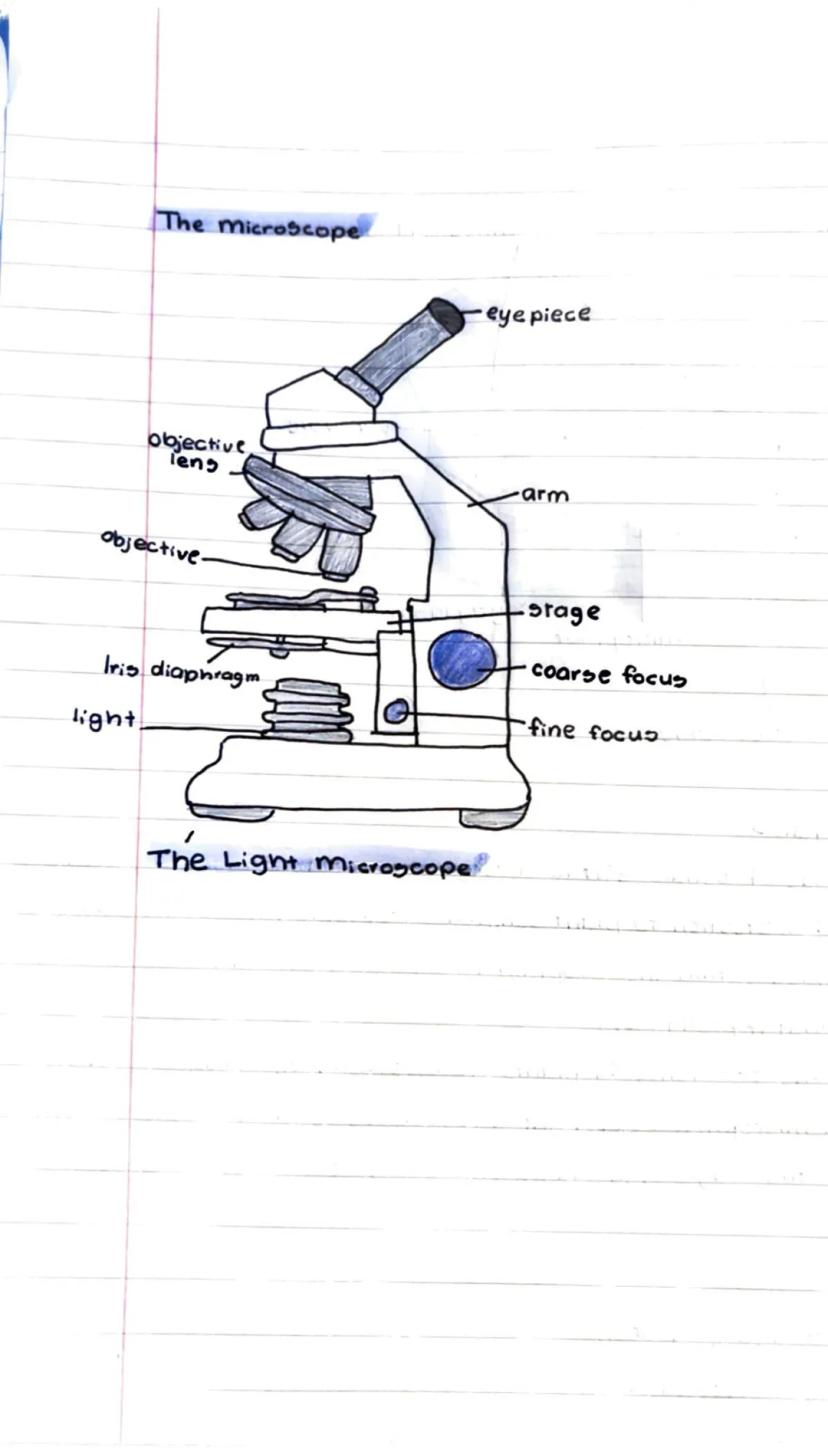 The microscope
eyepiece
objective
lens
arm
objective
stage
Iris diaphragm
coarse focus
light
fine focus
The Light microscope